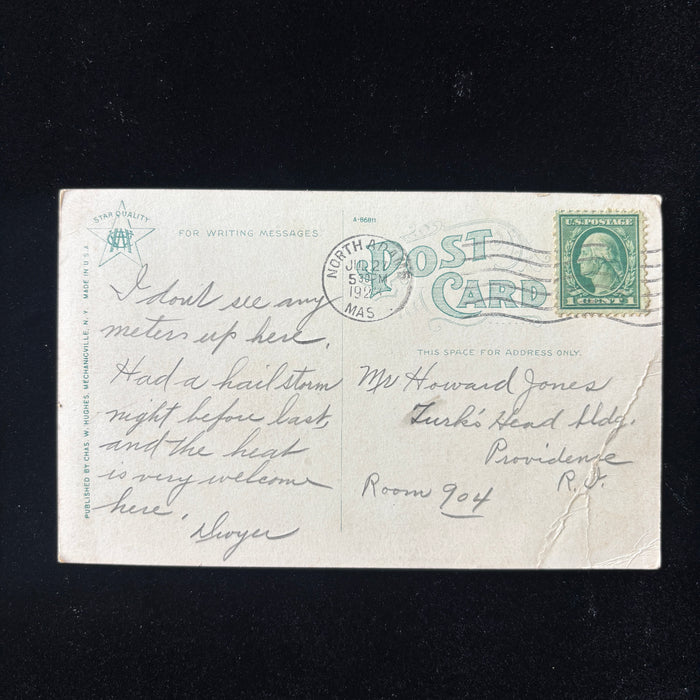 STAR QUALITY
FOR WRITING MESSAGES
A-86811
POST
CARD
NORTH ADAMS
5 30 PM
MAS
U.S. POSTAGE
1 CENT 1
THIS SPACE FOR ADDRESS ONLY.
PUBLISHED BY CHAS. W. HUGHES, MECHANICVILLE, N. Y. MADE IN U.S.A.
I dont see any
meters up here.
Had a hailstorm
night before last,
and the heat
is very welcome
here.
Dwyer
Mr Howard Jones
Turk's Head Bldg.
Providence
R.I.
Room 904